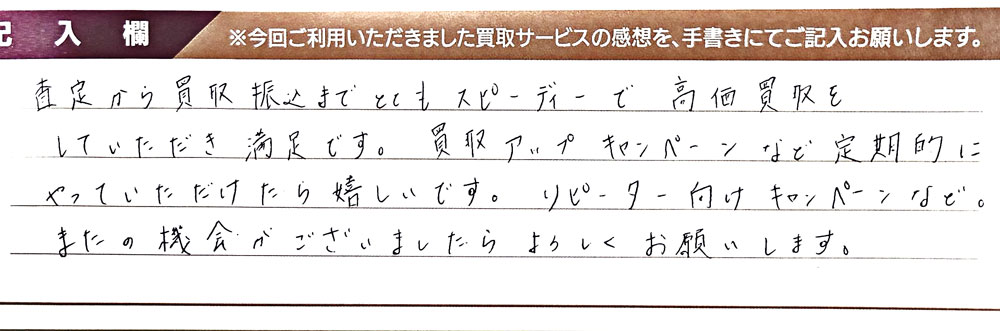 記入欄 ※今回ご利用いただきました買取サービスの感想を、手書きにてご記入お願いします。
査定から買取振込までとてもスピーディーで 高価買取を
していただき満足です。 買取アップキャンペーンなど定期的に
やっていただけたら嬉しいです。 リピーター向けキャンペーンなど。
またの機会がございましたら よろしく お願いします。